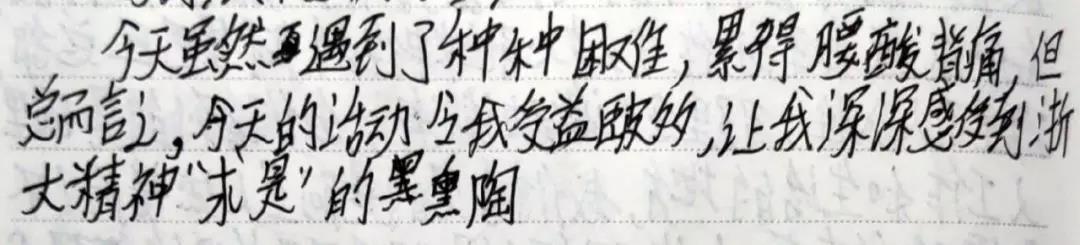 今天虽然遇到了种种困难,累得腰酸背痛,但
总而言之,今天的活动令我受益匪浅,让我深深感受到浙
大精神“求是”的熏陶